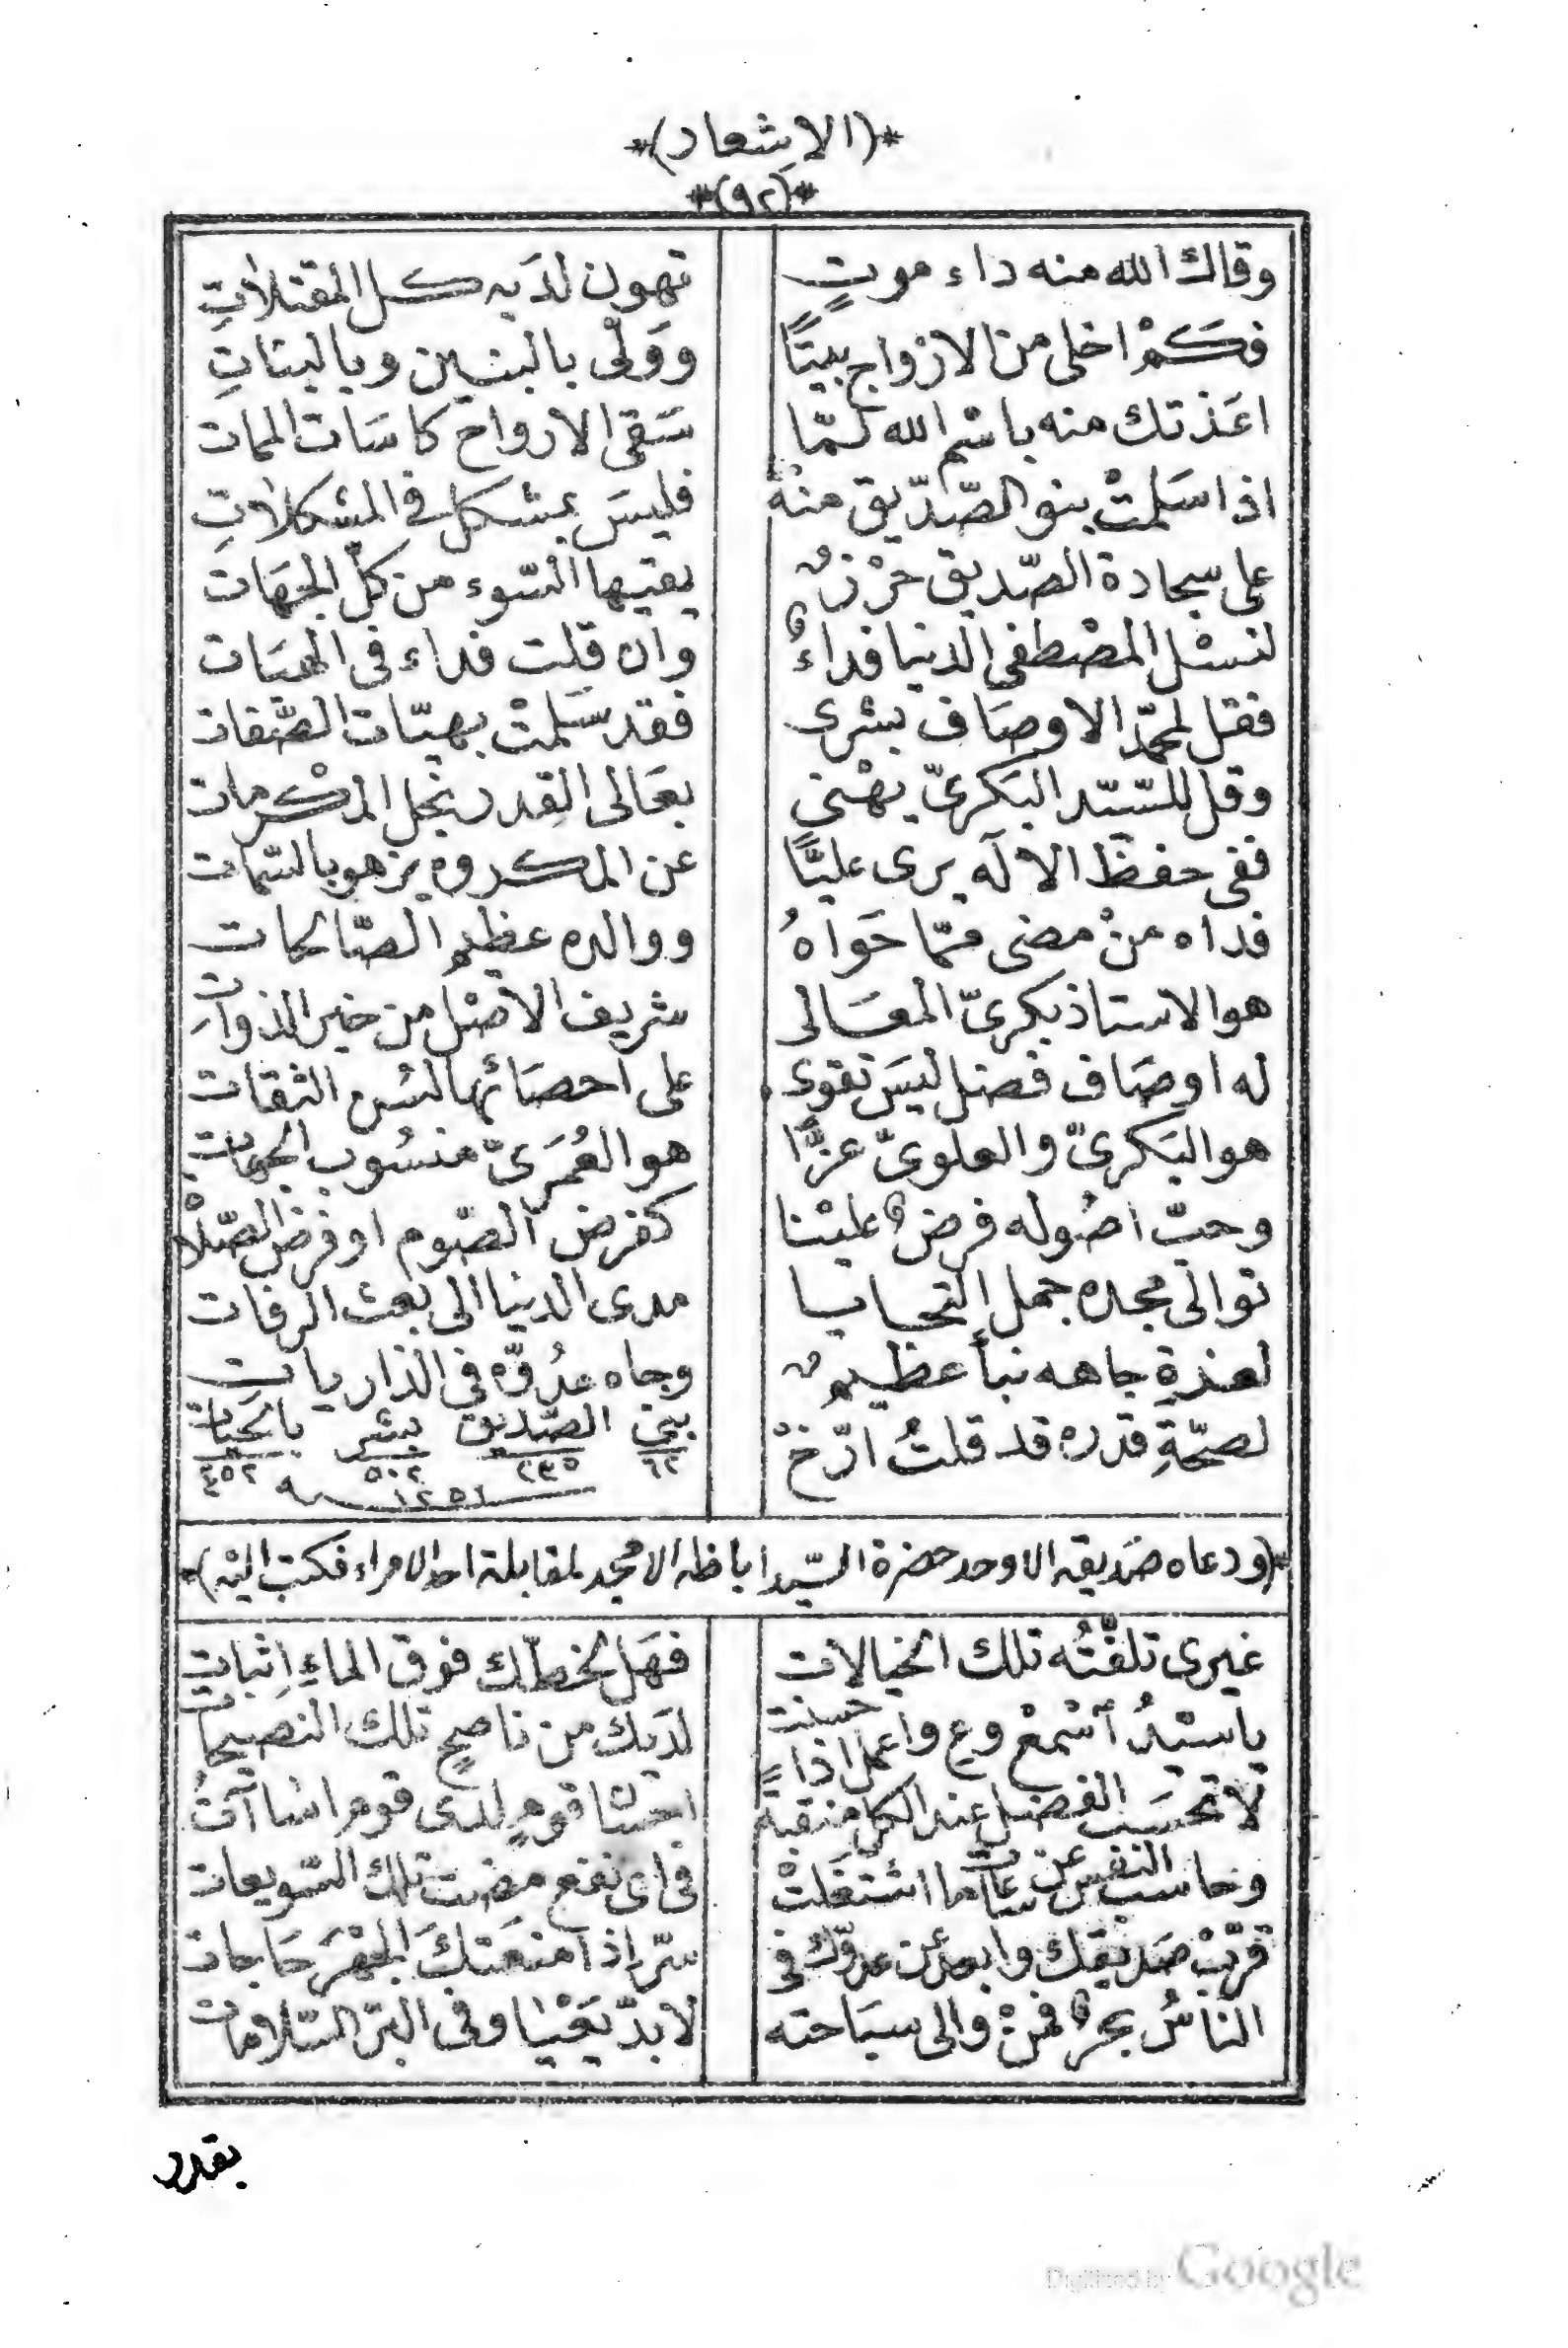 *(الاشعار)*
*(٩٢)*
وقاك الله منه داء موتٍ تهون لدَيه كل المقتلاتِ
فكَمْ اخلى من الازواج بيتًا ووَلّى بالبنين وبالبناتِ
اعَذتك منه باسْم الله لمّا سَقى الارواح كاسَات الممات
اذا سَلمتْ بنو الصّدّيق منهُ فليسَ بمشكل في المشكلاتِ
على سجادة الصّديق حرْزٌ يقيها السّوء من كلّ الجهَات
لنسْل المصْطفى الدنيا فداءٌ وان قلت فداء في الهبَات
فقل لمحمّد الاوصَاف بشرى فقد سَلمتْ بهيّات الصّفات
وقل للسّيّد البَكريّ يهْنى بعَالى القدر نجل المكْرمات
ففى حفظ الالَه يرى عليًّا عن المكروه يزهو بالسّمات
فداه منْ مضى ممّا حَواهُ ووالده عظيم الصّالحات
هو الاستاذ بكرىّ المعَالى شريف الاصْل من خير الذواتِ
له اوصَاف فضل ليسَ تقوى على احصَائها لسُن الثقات
هو البَكرىّ والعلوىّ عزًّا هو العُمَرىّ منسُوب الجهات
وحبّ اصُوله فرضٌ عليْنا كفرض الصّوم او فرض الصّلاة
توالى مجده جمل التحايا مدى الدنيا الى بعث الرفات
لعزة جاهه نبأ عظيمٌ وجاه عدُوّه فى الذاريات
لصحّةِ قدره قد قلتُ ارّخْ بيت الصّديق بشر بالحيَات
٦٢ ٢٣٥ ٥٠٢ ٤٥٢
١٢٥١
*(ودعاه صَديقه الاوحد حضرة السّيد اباظه الامجد لمقابلة احد الامراء فكتب اليْه)*
غيرى تلفّتُه تلك الخيالات فهَل لخطّك فوق الماء اِثبات
يا سيّدُ اسْمعْ وعِ واعمل اذا حسنت لدَيك من ناصحٍ تلك النصيحات
لا تحسَب الفضل عند الكل منقبةً احسَان قومٍ لدى قوم اسَاآتُ
وحاسب النفس عن ساعات ما اشتغَلتْ فى اى نفع مضت تلك السّويعات
قرّبْ صَديقك وابعد عن عدوّك فى سرّ اذا منعَتكَ الجهْرَ حَاجات
الناسُ بحرٌ فمنْ والى سبَاحته لا بدّ يَعْيا وفى البرّ السّلامات
بقدر
Digitized by Google